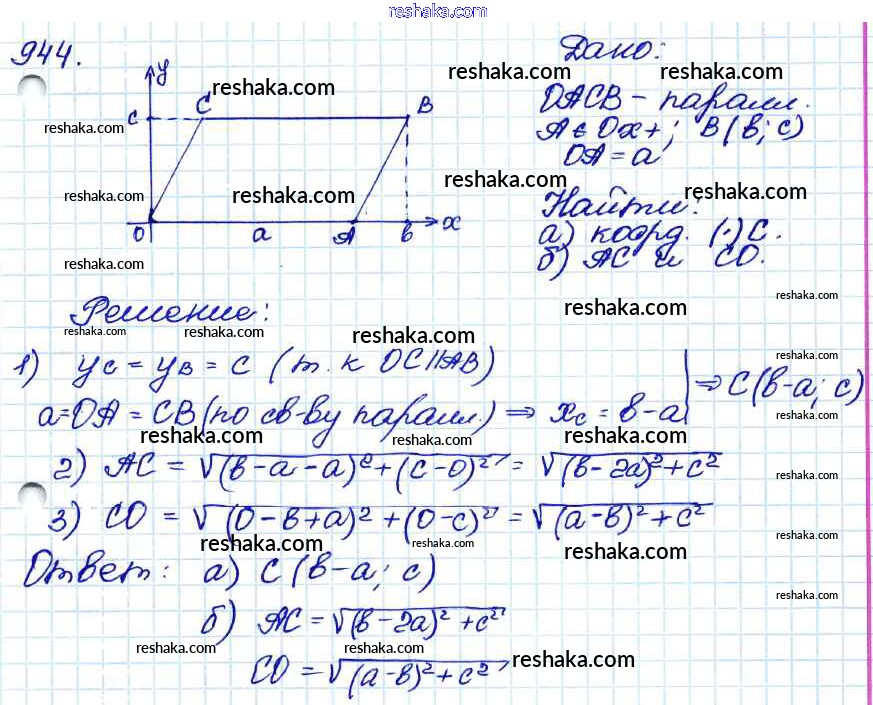 reshaka.com
944.
Дано:
reshaka.com reshaka.com reshaka.com
y
C C B
OACB – паралл.
reshaka.com
A ∈ Ox+; B(b; c)
OA = a
reshaka.com reshaka.com reshaka.com reshaka.com
Найти:
O a A b x
а) коорд. (·) C.
б) AC и CO.
reshaka.com
reshaka.com reshaka.com
Решение:
reshaka.com reshaka.com reshaka.com
reshaka.com
1) yc = yB = c (т.к OC||AB)
⇒ C(b-a; c)
reshaka.com
a=OA = CB (по св-ву паралл.) ⇒ xc = b-a
reshaka.com
reshaka.com reshaka.com reshaka.com
2) AC = √(b-a-a)²+(c-0)² = √(b-2a)²+c²
3) CO = √(0-b+a)²+(0-c)² = √(a-b)²+c²
reshaka.com reshaka.com reshaka.com
Ответ: а) C(b-a; c)
reshaka.com
б) AC = √(b-2a)²+c²
reshaka.com reshaka.com reshaka.com
CO = √(a-b)²+c²
reshaka.com